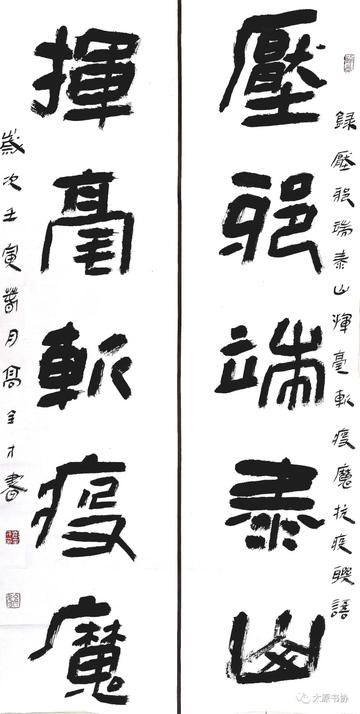 錄壓邪端泰山揮毫斬疫魔抗疫聯語
壓邪端泰山
揮毫斬疫魔
歲次壬寅萅月高全才書
太原书协